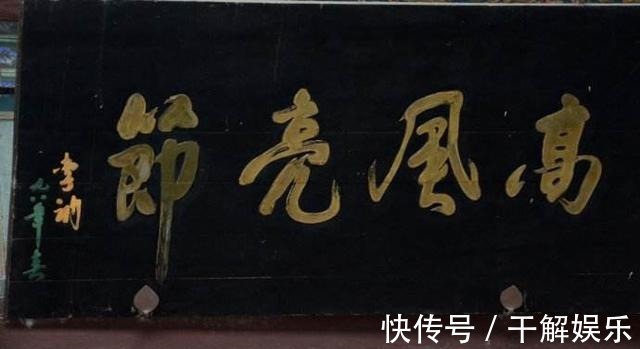 高風亮節
李訥
九八年春
快传号 / 干解娱乐